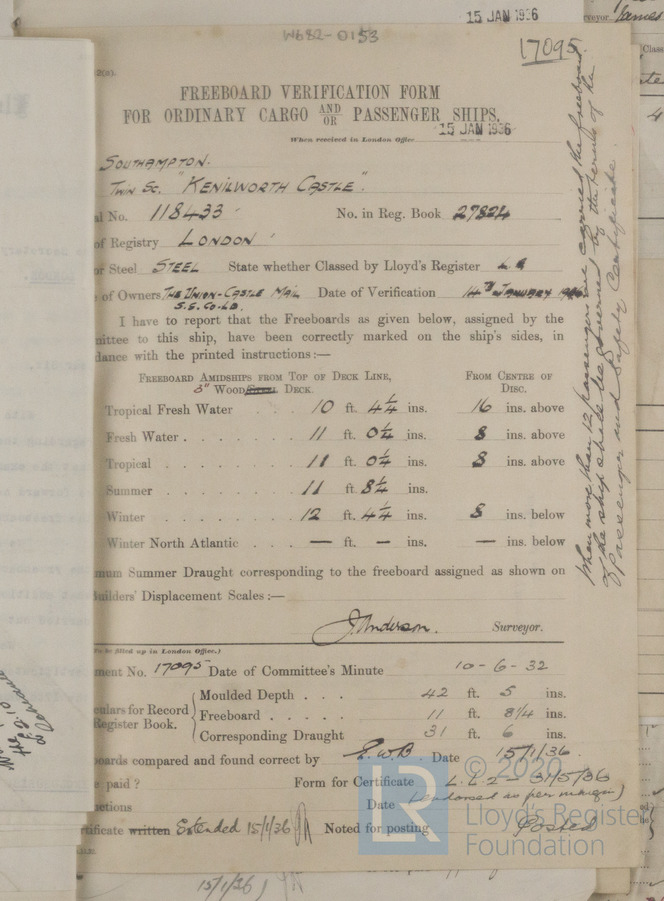 15 JAN 1936
W682-0153
17095
2(a).
FREEBOARD VERIFICATION FORM
FOR ORDINARY CARGO AND OR PASSENGER SHIPS.
When received in London Office 15 JAN 1936
SOUTHAMPTON.
TWIN SC. "KENILWORTH CASTLE".
al No. 118433 No. in Reg. Book 27824
of Registry LONDON
or Steel STEEL State whether Classed by Lloyd's Register
e of Owners THE UNION-CASTLE MAIL Date of Verification 14TH JANUARY
S.S. CO. LD.
I have to report that the Freeboards as given below, assigned by the
mittee to this ship, have been correctly marked on the ship's sides, in
dance with the printed instructions:—
FREEBOARD AMIDSHIPS FROM TOP OF DECK LINE, FROM CENTRE OF
3" WOOD STEEL DECK. DISC.
Tropical Fresh Water 10 ft. 4¼ ins. 16 ins. above
Fresh Water . . . . . . 11 ft. 0¼ ins. 8 ins. above
Tropical . . . . . . . 11 ft. 0¼ ins. 8 ins. above
Summer . . . . . . . 11 ft. 8¼ ins.
Winter . . . . . . . 12 ft. 4¼ ins. 8 ins. below
Winter North Atlantic . . . — ft. — ins. — ins. below
mum Summer Draught corresponding to the freeboard assigned as shown on
Builders' Displacement Scales :—
J. Anderson. Surveyor.
(To be filled up in London Office.)
ment No. 17095 Date of Committee's Minute 10-6-32
culars for Record
Register Book.
Moulded Depth . . . 42 ft. 5 ins.
Freeboard . . . . . 11 ft. 8¼ ins.
Corresponding Draught 31 ft. 6 ins.
boards compared and found correct by E.W.B. Date 15/1/36.
e paid ? Form for Certificate L.L.2 - 31/5/36
uctions Date (endorsed as per margin)
rtificate written Extended 15/1/36 Noted for posting Posted
15/1/36
When more than 12 passengers are carried the freeboard
of the ship shall be governed by the terms of the
Passenger and Safety Certificate.
© 2020
LR
Lloyd's Register
Foundation